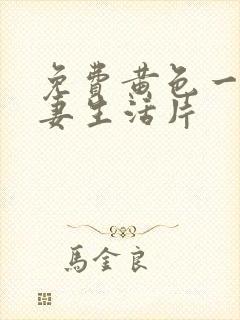 免費黄色一
妻生活片
馬金良